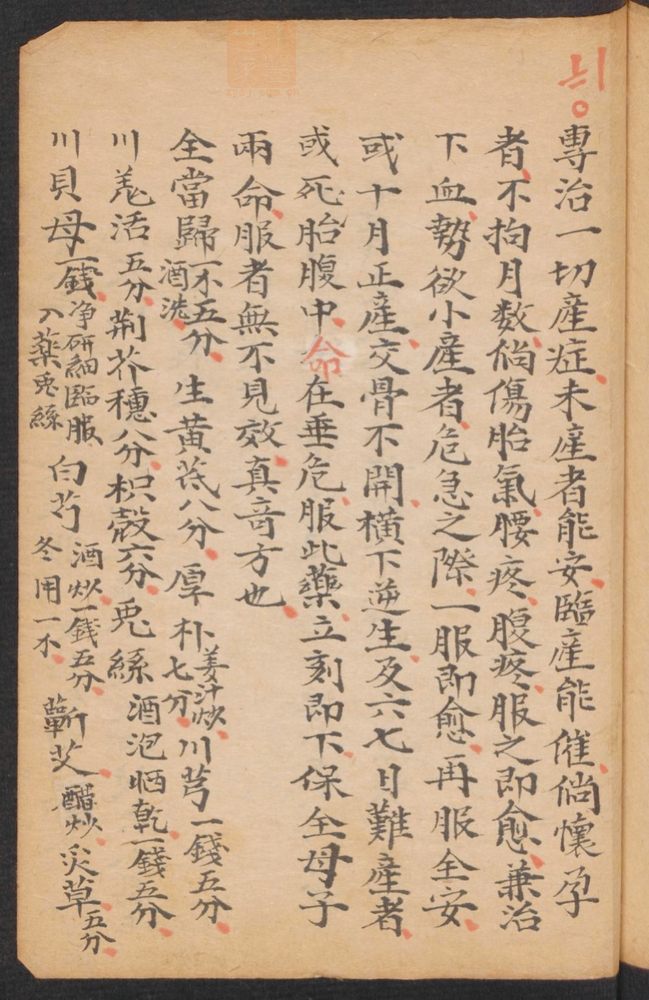 專治一切產症未產者能安臨產能催倘懷孕
者不拘月数倘傷胎氣腰疼腹疼服之即愈兼治
下血勢欲小產者危急之際一服即愈再服全安
或十月正產交骨不開橫下逆生及六七日難產者
或死胎腹中命在垂危服此藥立刻即下保全母子
兩命服者無不見效真奇方也
全當歸一不五分酒洗 生黄芪八分 厚朴姜汁炒七分 川芎一錢五分
川羗活五分 荆芥穗八分 枳殼六分 兎絲酒泡晒乾一錢五分
川貝母一錢净研細臨服入藥兎絲 白芍酒炒一錢五分冬用一不 蘄艾醋炒 炙草五分